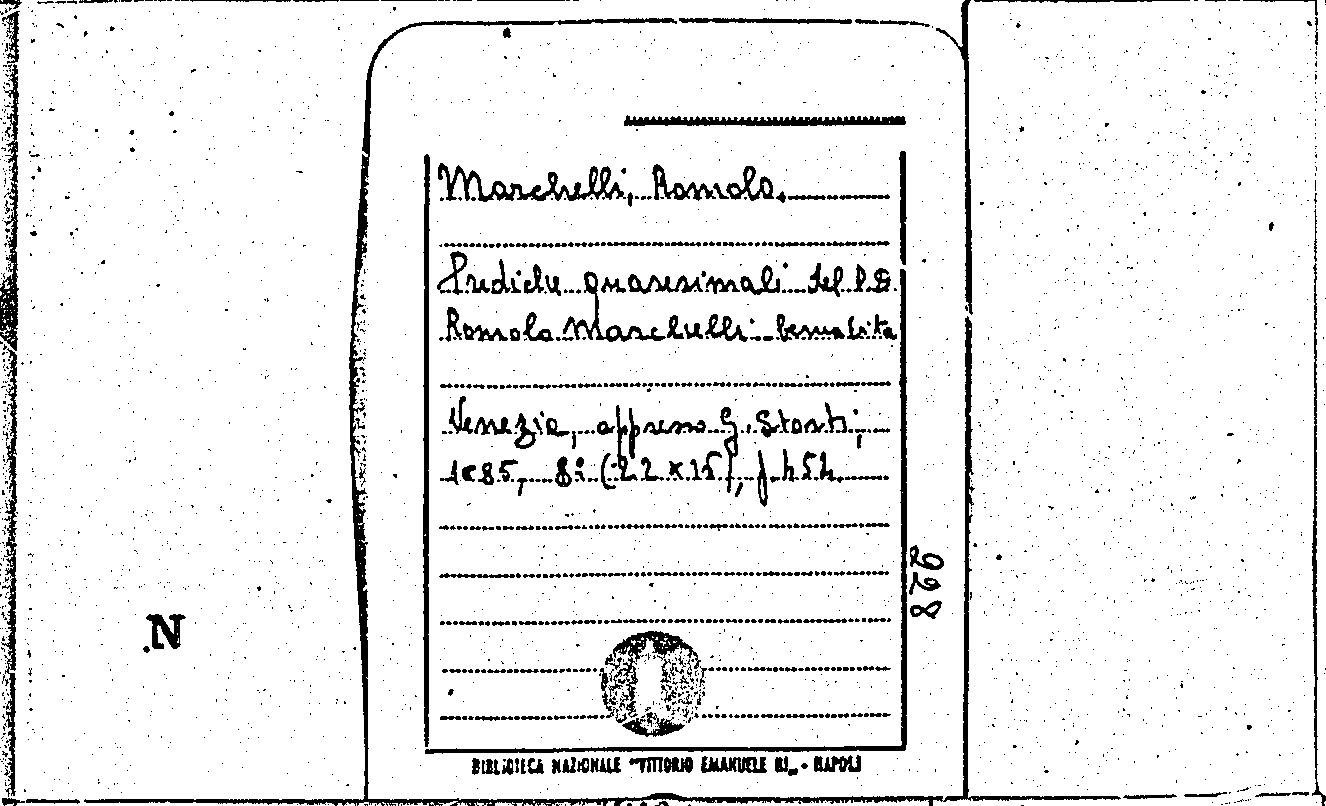 Marchelli, Romolo.
Prediche quaresimali del P.D.
Romolo Marchelli
Venezia, appresso G. Storti,
1685, 8° (22 x 15), p. 454.
928
N
BIBLIOTECA NAZIONALE "VITTORIO EMANUELE III" - NAPOLI